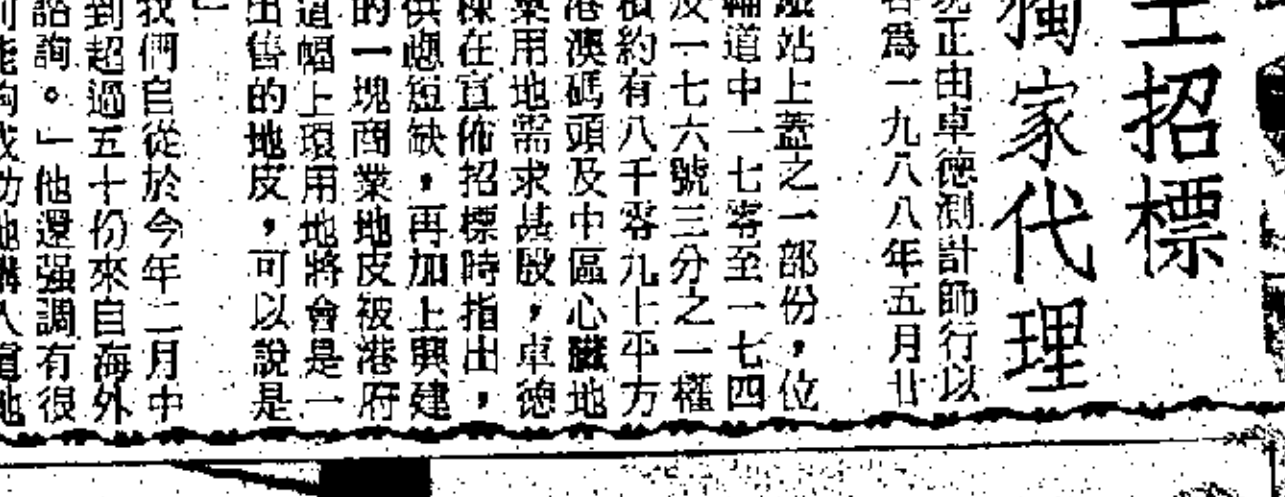 招標
獨家代理
正由卓德測計師行以
為一九八八年五月廿
站上蓋之一部份，位
道中一七零至一七四
及一七六號三分之一權
約有八千零九十平方
港澳碼頭及中區心臟地
用地需求甚殷，卓德
在宣佈招標時指出，
供應短缺，再加上興建
的一塊商業地皮被港府
幅上環用地將會是一
出售的地皮，可以說是
」
我們自從於今年二月中
到超過五十份來自海外
諮詢。」他還强調有很